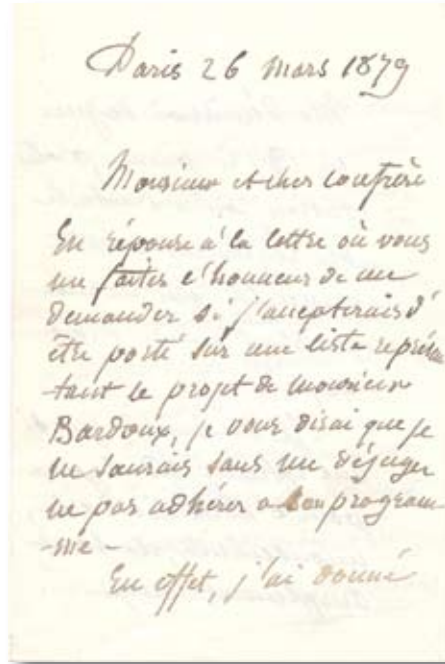 Paris 26 mars 1879
Monsieur et cher confrère
En réponse à la lettre où vous
me faites l'honneur de me
demander si j'accepterais d'
être porté sur une liste représen
-tant le projet de monsieur
Bardoux, je vous dirai que je
ne saurais sans me déjuger
ne pas adhérer a son program
-me
En effet, j'ai donné